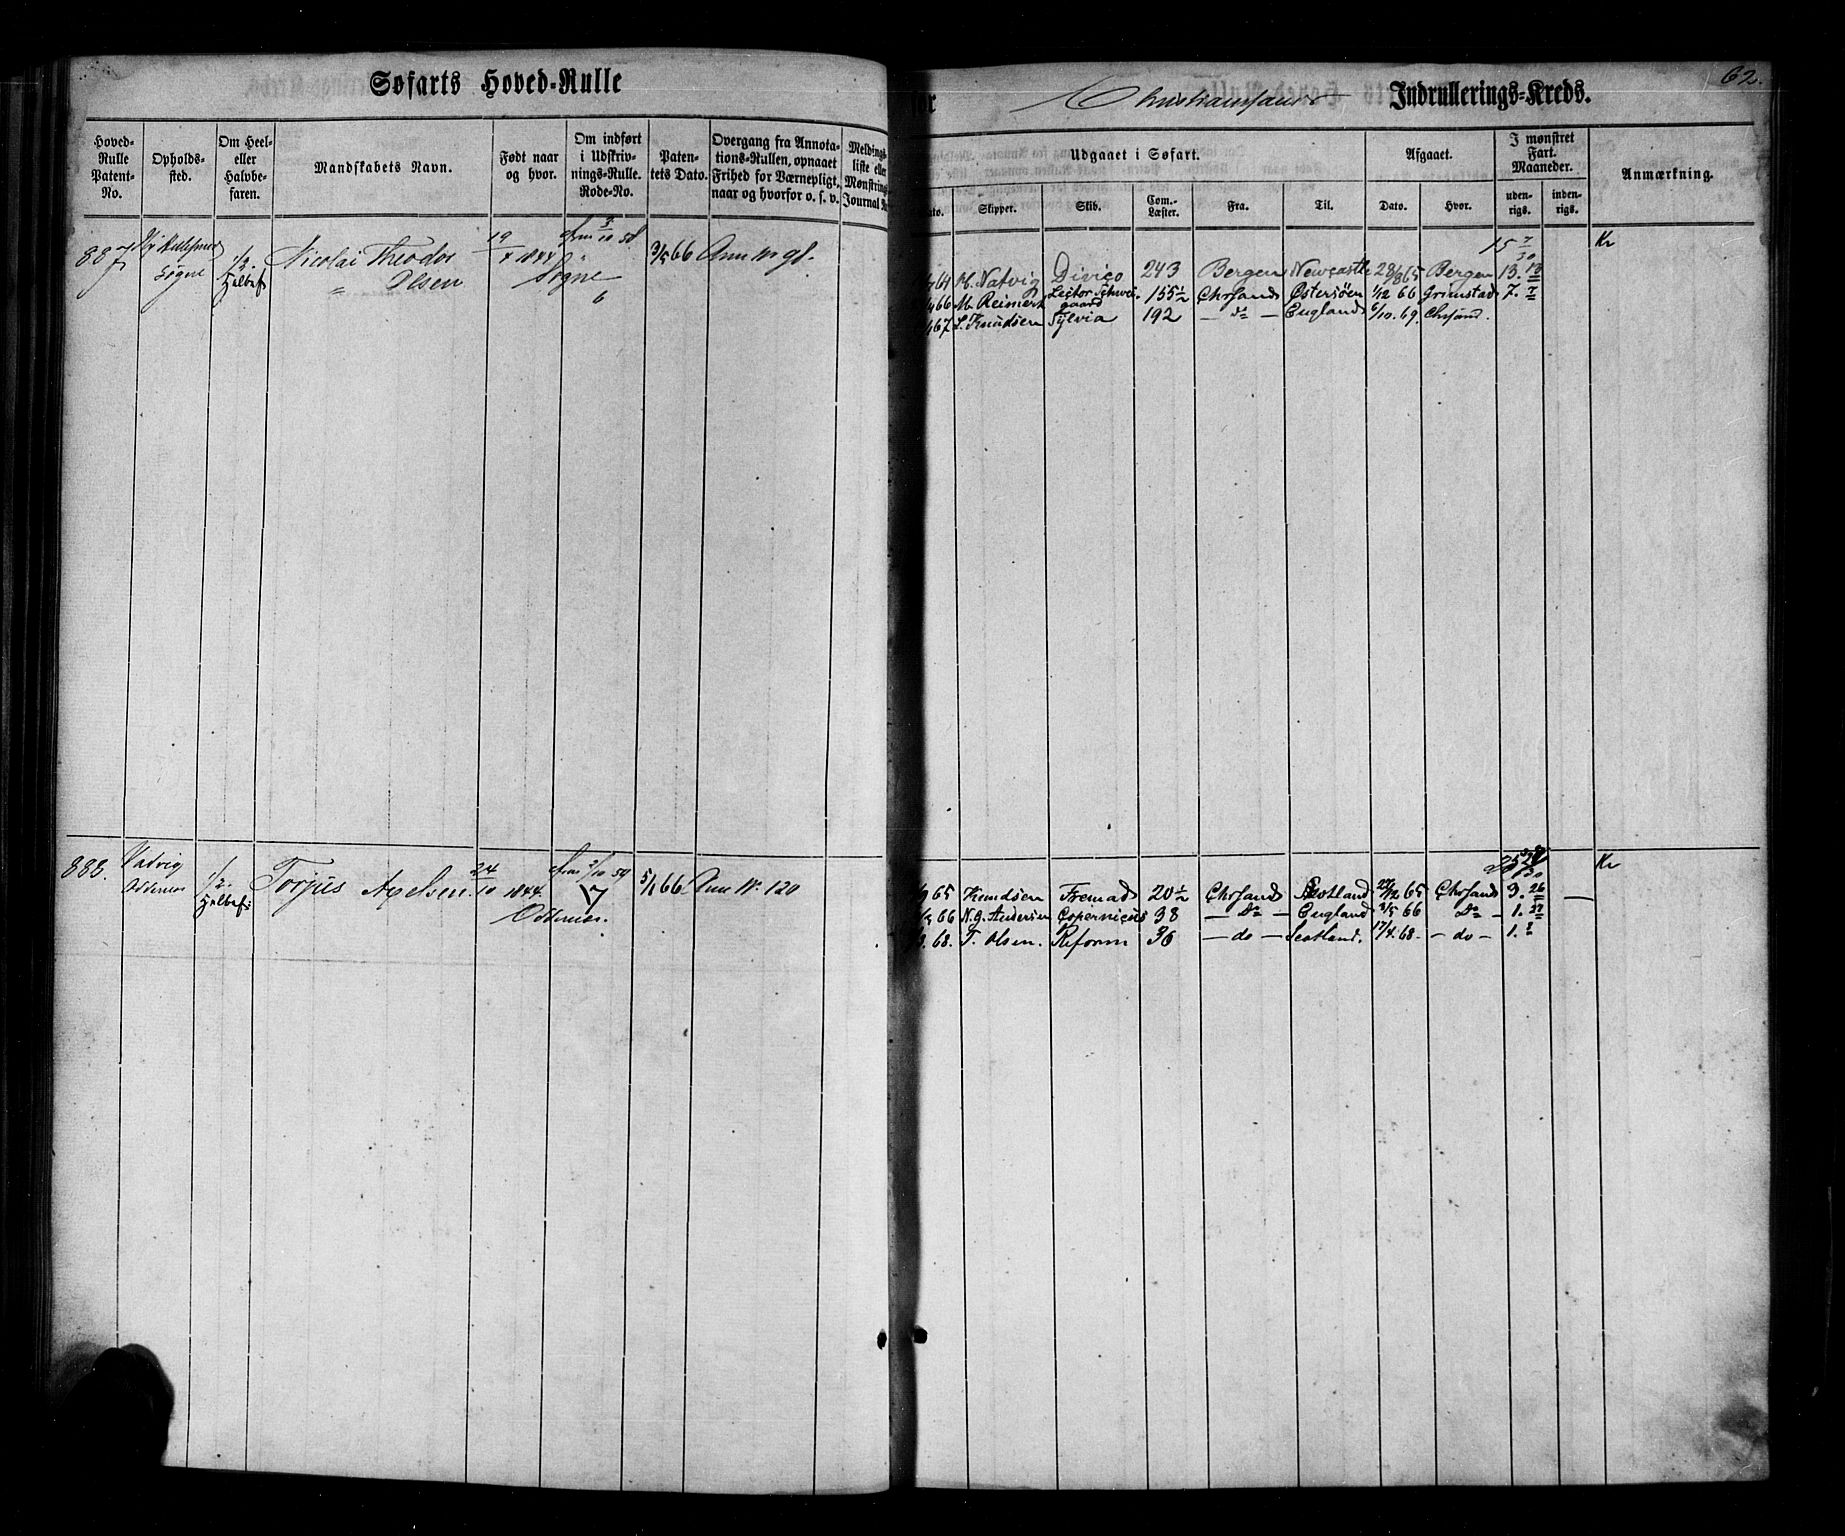 Søfarts Hoved-Rulle
for Christianssands Indrullerings-Kreds.
62.
Hoved-Rulle Patent-No.
Opholds-sted.
Om Heel- eller Halvbe-faren.
Mandskabets Navn.
Født naar og hvor.
Om indført i Udskriv-nings-Rulle. Rode-No.
Paten-tets Dato.
Overgang fra Annota-tions-Rullen, opnaaet Frihed for Værnepligt, naar og hvorfor o. s. v.
Meldings-liste eller Mønstrings Journal
Udgaaet i Søfart.
Skipper.
Skib.
Com. Læster.
Fra.
Til.
Afgaaet.
Dato.
Hvor.
I mønstret Fart. Maaneder.
uden-rigs.
inden-rigs.
Anmærkning.
887 Ny Hellesund Søgne 1/2 Halbef Nicolai Theodor Olsen 19 1844 Søgne 6 3/5 66
15 7/30 Kr
64 Natvig Divico 243 Bergen Newcastle 28/8 65 Bergen 13. 13
66 M. Reimert Lector Schwei-gaard 155 1/2 Chrsand Østersøen 1/12 66 Grimstad 7. 7
67 L. Knudsen Sylvia 192 — do — England 6/10. 69. Chrsand.
888. Vatvig Oddernes 1/2. Halbef: Torjus Axelsen 24/10 1844. Oddernes. 7 5/1 66 Ann N. 120
Kr
9 65 Knudsen Fremad 20 1/2 Chrsand Skotland 65 Chrsand 9. 26 —
66 N. G. Andersen Copernicus 38 — Do — England 66 Do — 1. 27
68. T. Olsen. Reform 36 — do — Scotland. 17/4. 68. — do — 1.